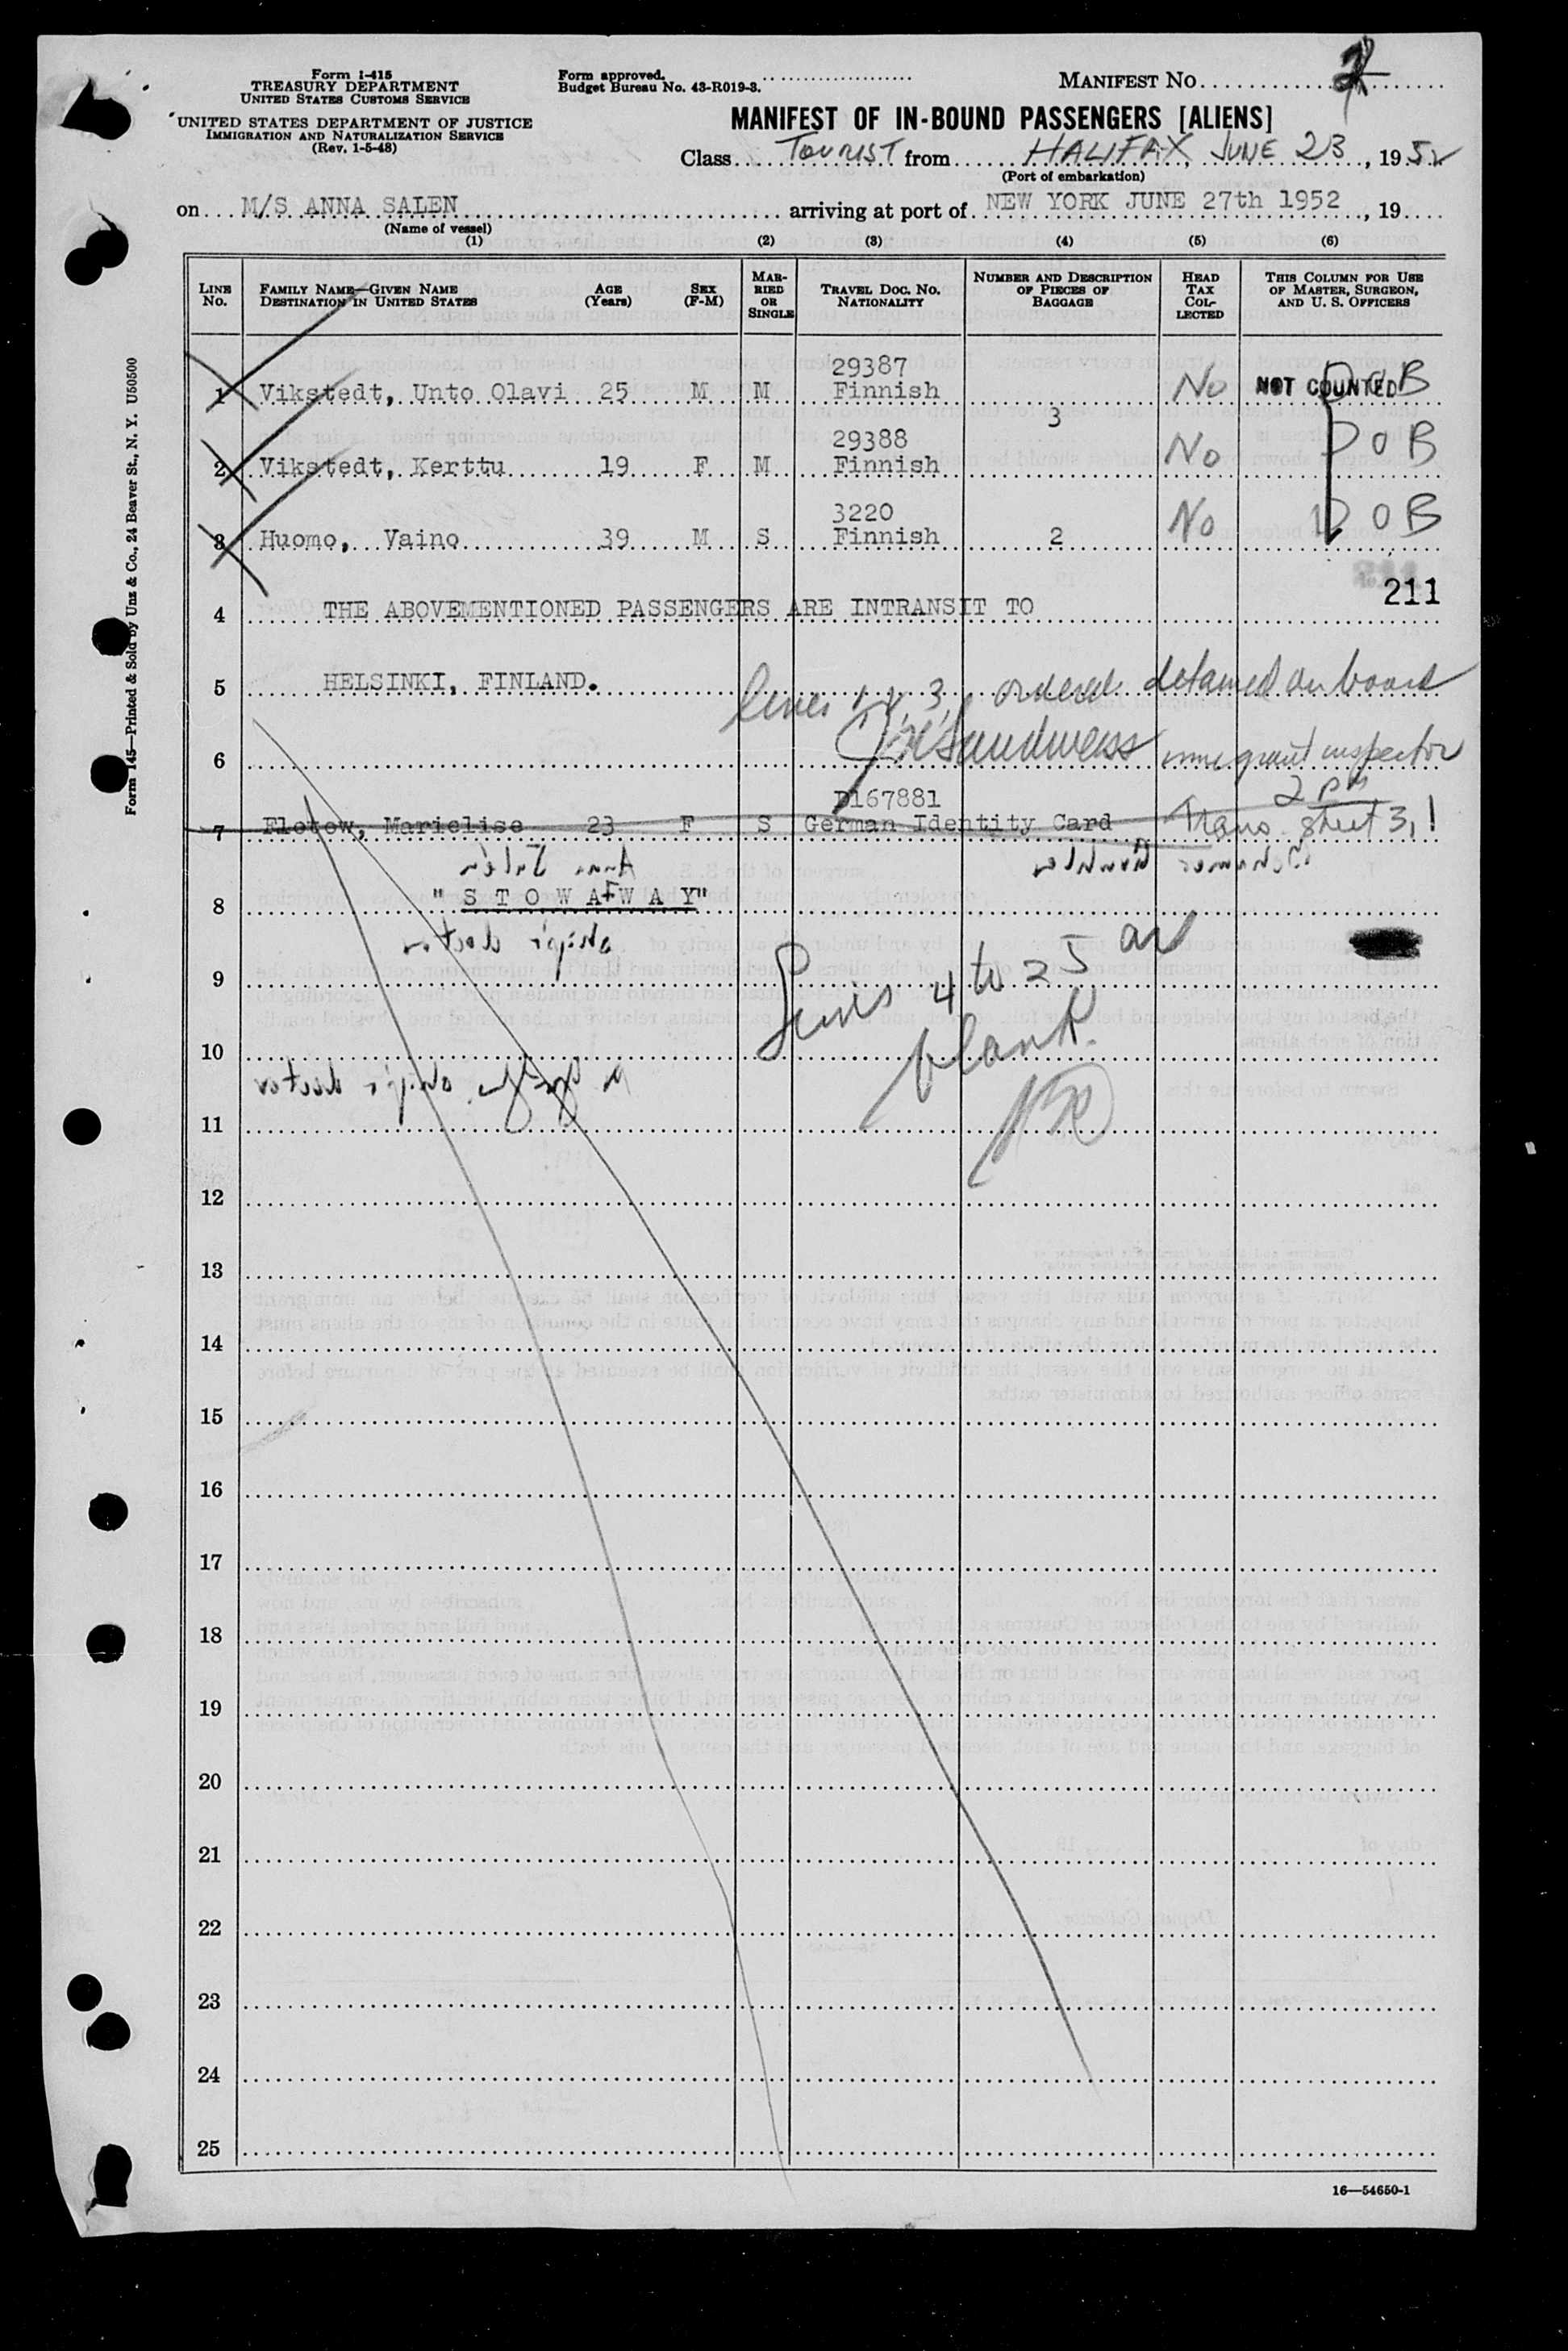 Form I-415
TREASURY DEPARTMENT
UNITED STATES CUSTOMS SERVICE
UNITED STATES DEPARTMENT OF JUSTICE
IMMIGRATION AND NATURALIZATION SERVICE
(Rev. 1-5-48)
Form approved.
Budget Bureau No. 43-R019-3.
MANIFEST NO.
MANIFEST OF IN-BOUND PASSENGERS [ALIENS]
Class TOURIST from HALIFAX, JUNE 23, 1952
(Port of embarkation)
on M/S ANNA SALEN arriving at port of NEW YORK JUNE 27th 1952, 19
(Name of vessel)
(1) (2) (3) (4) (5) (6)
LINE NO. FAMILY NAME—GIVEN NAME DESTINATION IN UNITED STATES AGE (Years) SEX (F-M) MARRIED OR SINGLE TRAVEL DOC. NO. NATIONALITY NUMBER AND DESCRIPTION OF PIECES OF BAGGAGE HEAD TAX COLLECTED THIS COLUMN FOR USE OF MASTER, SURGEON, AND U. S. OFFICERS
29387
1 Vikstedt, Unto Olavi 25 M M Finnish No NOT COUNTED DOB
3
29388
2 Vikstedt, Kerttu 19 F M Finnish No DOB
3220
3 Huomo, Vaino 39 M S Finnish 2 No DOB
211
4 THE ABOVEMENTIONED PASSENGERS ARE INTRANSIT TO
5 HELSINKI, FINLAND.
lines 1, 2, 3, ordered detained on board
6 immigrant inspector
2 PM
D167881
7 Flotow, Marielise 23 F S German Identity Card Trans. sheet 3, 1
Anna Salén
8 "S T O W A W A Y"
ship's doctor
9 Lines 4 to 25 are
10 blank.
ship's doctor
11
12
13
14
15
16
17
18
19
20
21
22
23
24
25
16—54650-1
Form 145—Printed & Sold by Unz & Co., 24 Beaver St., N. Y. U50500